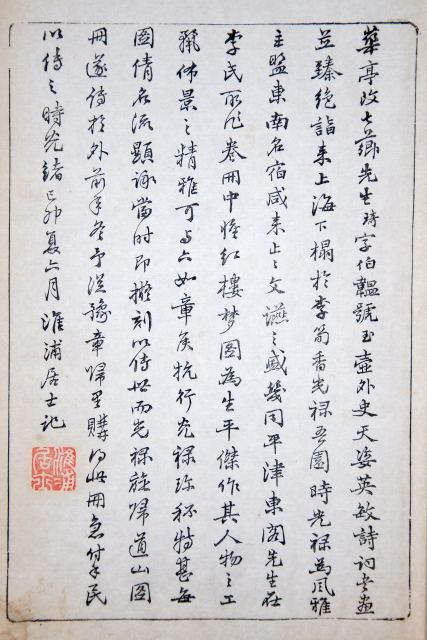 華亭改七薌先生琦字伯韞號玉壺外史天姿英敏詩詞書畫
並臻絕詣來上海下榻於李筍香光祿吾園時光祿為風雅
主盟東南名宿咸來止止文讌之盛幾同平津東閣先生在
李氏所作卷冊中惟紅樓夢圖為生平傑作其人物之工
布景之精雅可與六如章侯抗行光祿珍祕特甚每
圖倩名流題詠當時即擬刻以傳世而光祿旋歸道山圖
冊遂傳於外前年冬予從豫章歸里購得此冊急付手民
以傳之時光緒己卯夏六月淮浦居士記
淮浦居士